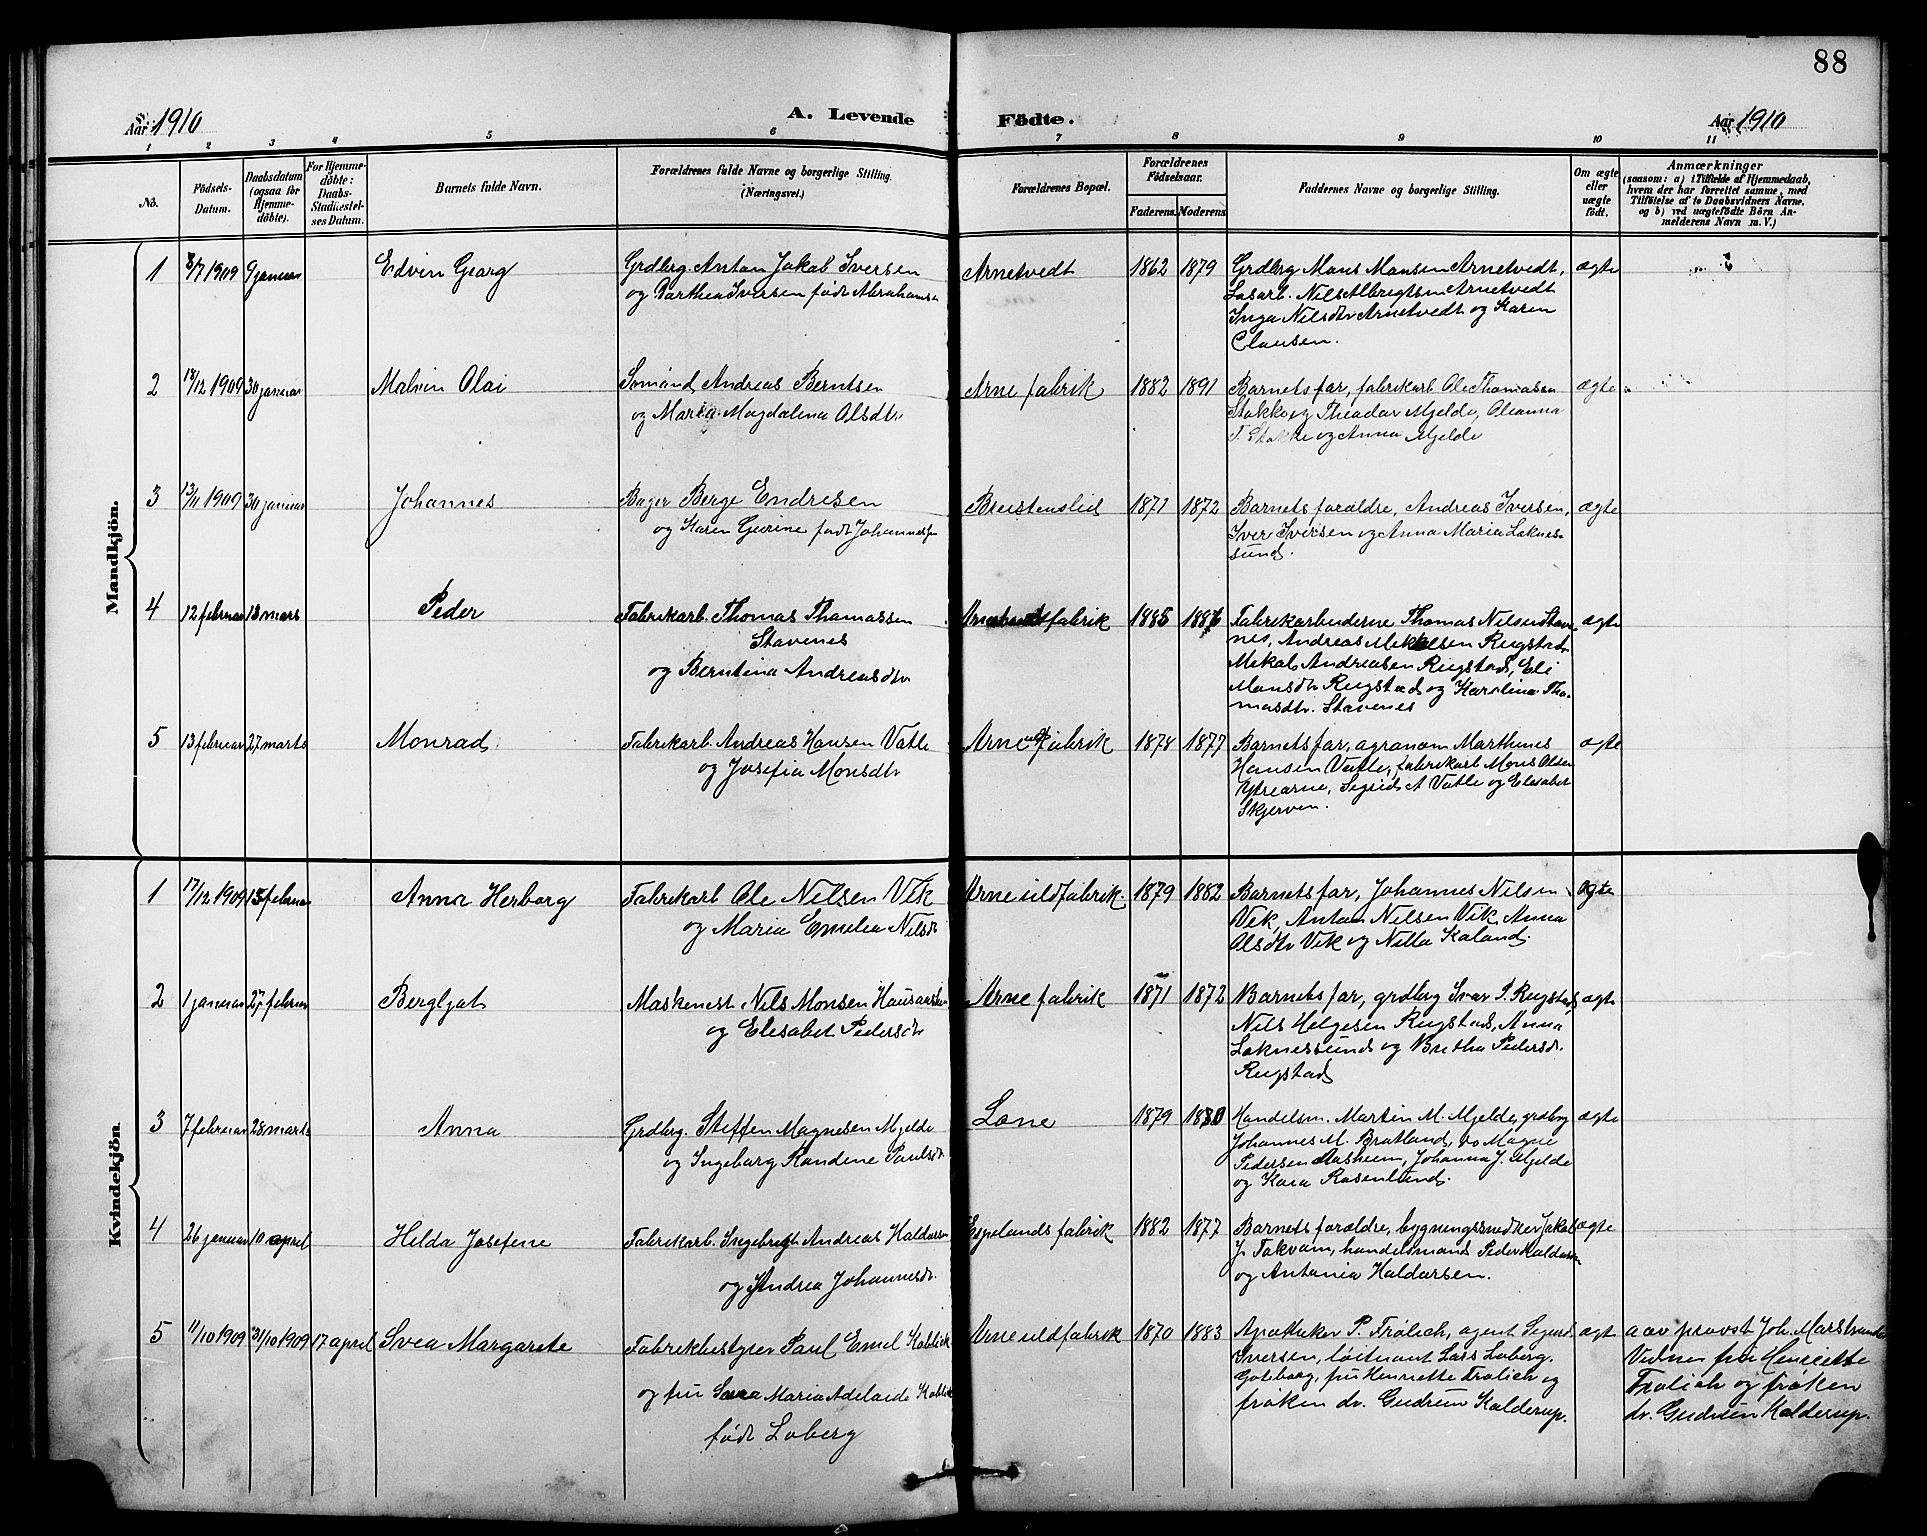 88
Aar 1910
A. Levende Födte.
Aar 1910
1 2 3 4 5 6 7 8 9 10 11
No.
Födsels-
Datum.
Daabsdatum
(ogsaa for
Hjemme-
döbte).
For Hjemme-
döbte:
Daabs-
Stadfæstel-
ses Datum.
Barnets fulde Navn.
Forældrenes fulde Navne og borgerlige Stilling.
(Næringsvei.)
Forældrenes Bopæl.
Forældrenes
Födselsaar.
Faderens. Moderens.
Faddernes Navne og borgerlige Stilling.
Om ægte
eller
uægte
födt.
Anmærkninger
(saasom: a) i Tilfælde af Hjemmedaab,
hvem der har forrettet samme, med
Tilföielse af to Daabsvidners Navne.
og b) ved uægtefödte Börn An-
melderens Navn m. V.)
Mandkjön.
1 8/7 1909 9 januar Edvin Georg Grdbrg. Anton Jakob Iversen Arnetvedt 1862 1879 Grdbrg Mons Monsen Arnetvedt, ægte
og Dorthea Iversen født Abrahamsen Løsarb. Nils Albrigtsen Arnetvedt
Inga Nilsdtr Arnetvedt og Karen
Clausen.
2 18/12 1909 30 januar Malvin Olai Sømand Andreas Berntsen Arne fabrik 1882 1891 Barnets far, fabrikarb Ole Thomassen ægte
og Maria Magdalena Olsdtr Stokke og Theodor Mjelde, Oleanna
T. Stokke og Anna Mjelde
3 13/11 1909 30 januar Johannes Bager Berge Endresen Breistenslid 1871 1872 Barnets forældre, Andreas Iversen, ægte
og Karen Gurine født Johannessen Iver Iversen og Anna Maria Loknes-
sund.
4 12 februar 13 mars Peder Fabrikarb. Thomas Thomassen fabrik 1885 1886 Fabrikarbeiderne Thomas Nilsen Stave- ægte
Stavenes nes, Andreas Mikkelsen Rugstad
og Berntina Andreasdtr Mikal Andreasen Rugstad, Eli
Monsdtr Rugstad og Karolina Tho-
masdtr. Stavenes
5 13 februar 27 marts Monrad Fabrikarb. Andreas Hansen Vatle Arne uldfabrik 1878 1877 Barnets far, agronom Marthinus ægte
og Josefia Monsdtr Hansen Vatle, fabrikarb Mons Olsen
Ytrearne, Sigrid A Vatle og Elisabet
Skjerven.
Kvindekjön.
1 17/12 1909 13 februar Anna Herborg Fabrikarb Ole Nilsen Vik Arne uldfabrik. 1879 1882 Barnets far, Johannes Nilsen ægte
og Maria Emelia Nilsdtr Vik, Anton Nilsen Vik, Anna
Olsdtr Vik og Nilla Kaland.
2 1 januar 27 februar Bergljot Maskinist Nils Monsen Arne fabrik 1871 1872 Barnets far, grdbrg Ivar P. Rugstad, ægte
og Elisabet Pedersdtr Nils Helgesen Rugstad, Anna
Loknessund og Bretha Pedersdtr.
Rugstad
3 7 februar 28 marts Anna Grdbrg. Steffen Magnesen Mjelde Lone 1879 1880 Handelsm. Martin M. Mjelde, grdbrg ægte
og Ingeborg Randine Paulsdtr Johannes M. Bratland, do Magne
Pedersen Aasheim, Johanna J. Mjelde
og Kaia Rosenlund.
4 26 januar 10 april Helda Josefine Fabrikarb. Ingebrigt Andreas Haldorsen Espelands fabrik 1882 1877 Barnets forældre, bygningssnedker Jakob ægte
og Andrea Johannesdtr. J. Takvam, handelsmand Peder Haldorsen
og Antonia Haldorsen.
5 11/10 1909 31/10 1909 17 april Svea Margarete Fabrikbestyrer Paul Emil Arne uldfabrik 1870 1883 Apotheker P. Frølich, agent Sigurd ægt a av provst Joh. Marstrander
og fru Maria Adelaide Iversen, løitnant Lars Loberg. Vidner fru Henriette
født Loberg Gøteborg, fru Henriette Frølich og Frølich og frøken
frøken dr. Gudrun Kolderup. dr. Gudrun Kolderup.